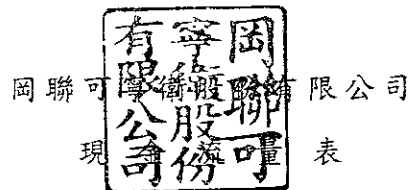 岡聯可寧衛股份有限公司
現金流量表
岡聯可
寧衛股份
有限公司